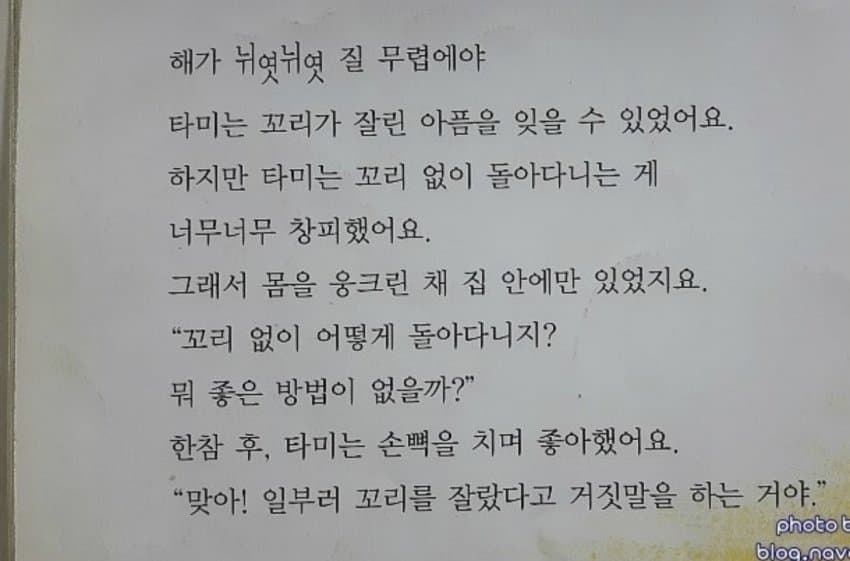 해가 뉘엿뉘엿 질 무렵에야
타미는 꼬리가 잘린 아픔을 잊을 수 있었어요.
하지만 타미는 꼬리 없이 돌아다니는 게
너무너무 창피했어요.
그래서 몸을 웅크린 채 집 안에만 있었지요.
“꼬리 없이 어떻게 돌아다니지?
뭐 좋은 방법이 없을까?”
한참 후, 타미는 손뼉을 치며 좋아했어요.
“맞아! 일부러 꼬리를 잘랐다고 거짓말을 하는 거야.”
photo b
blog.nav